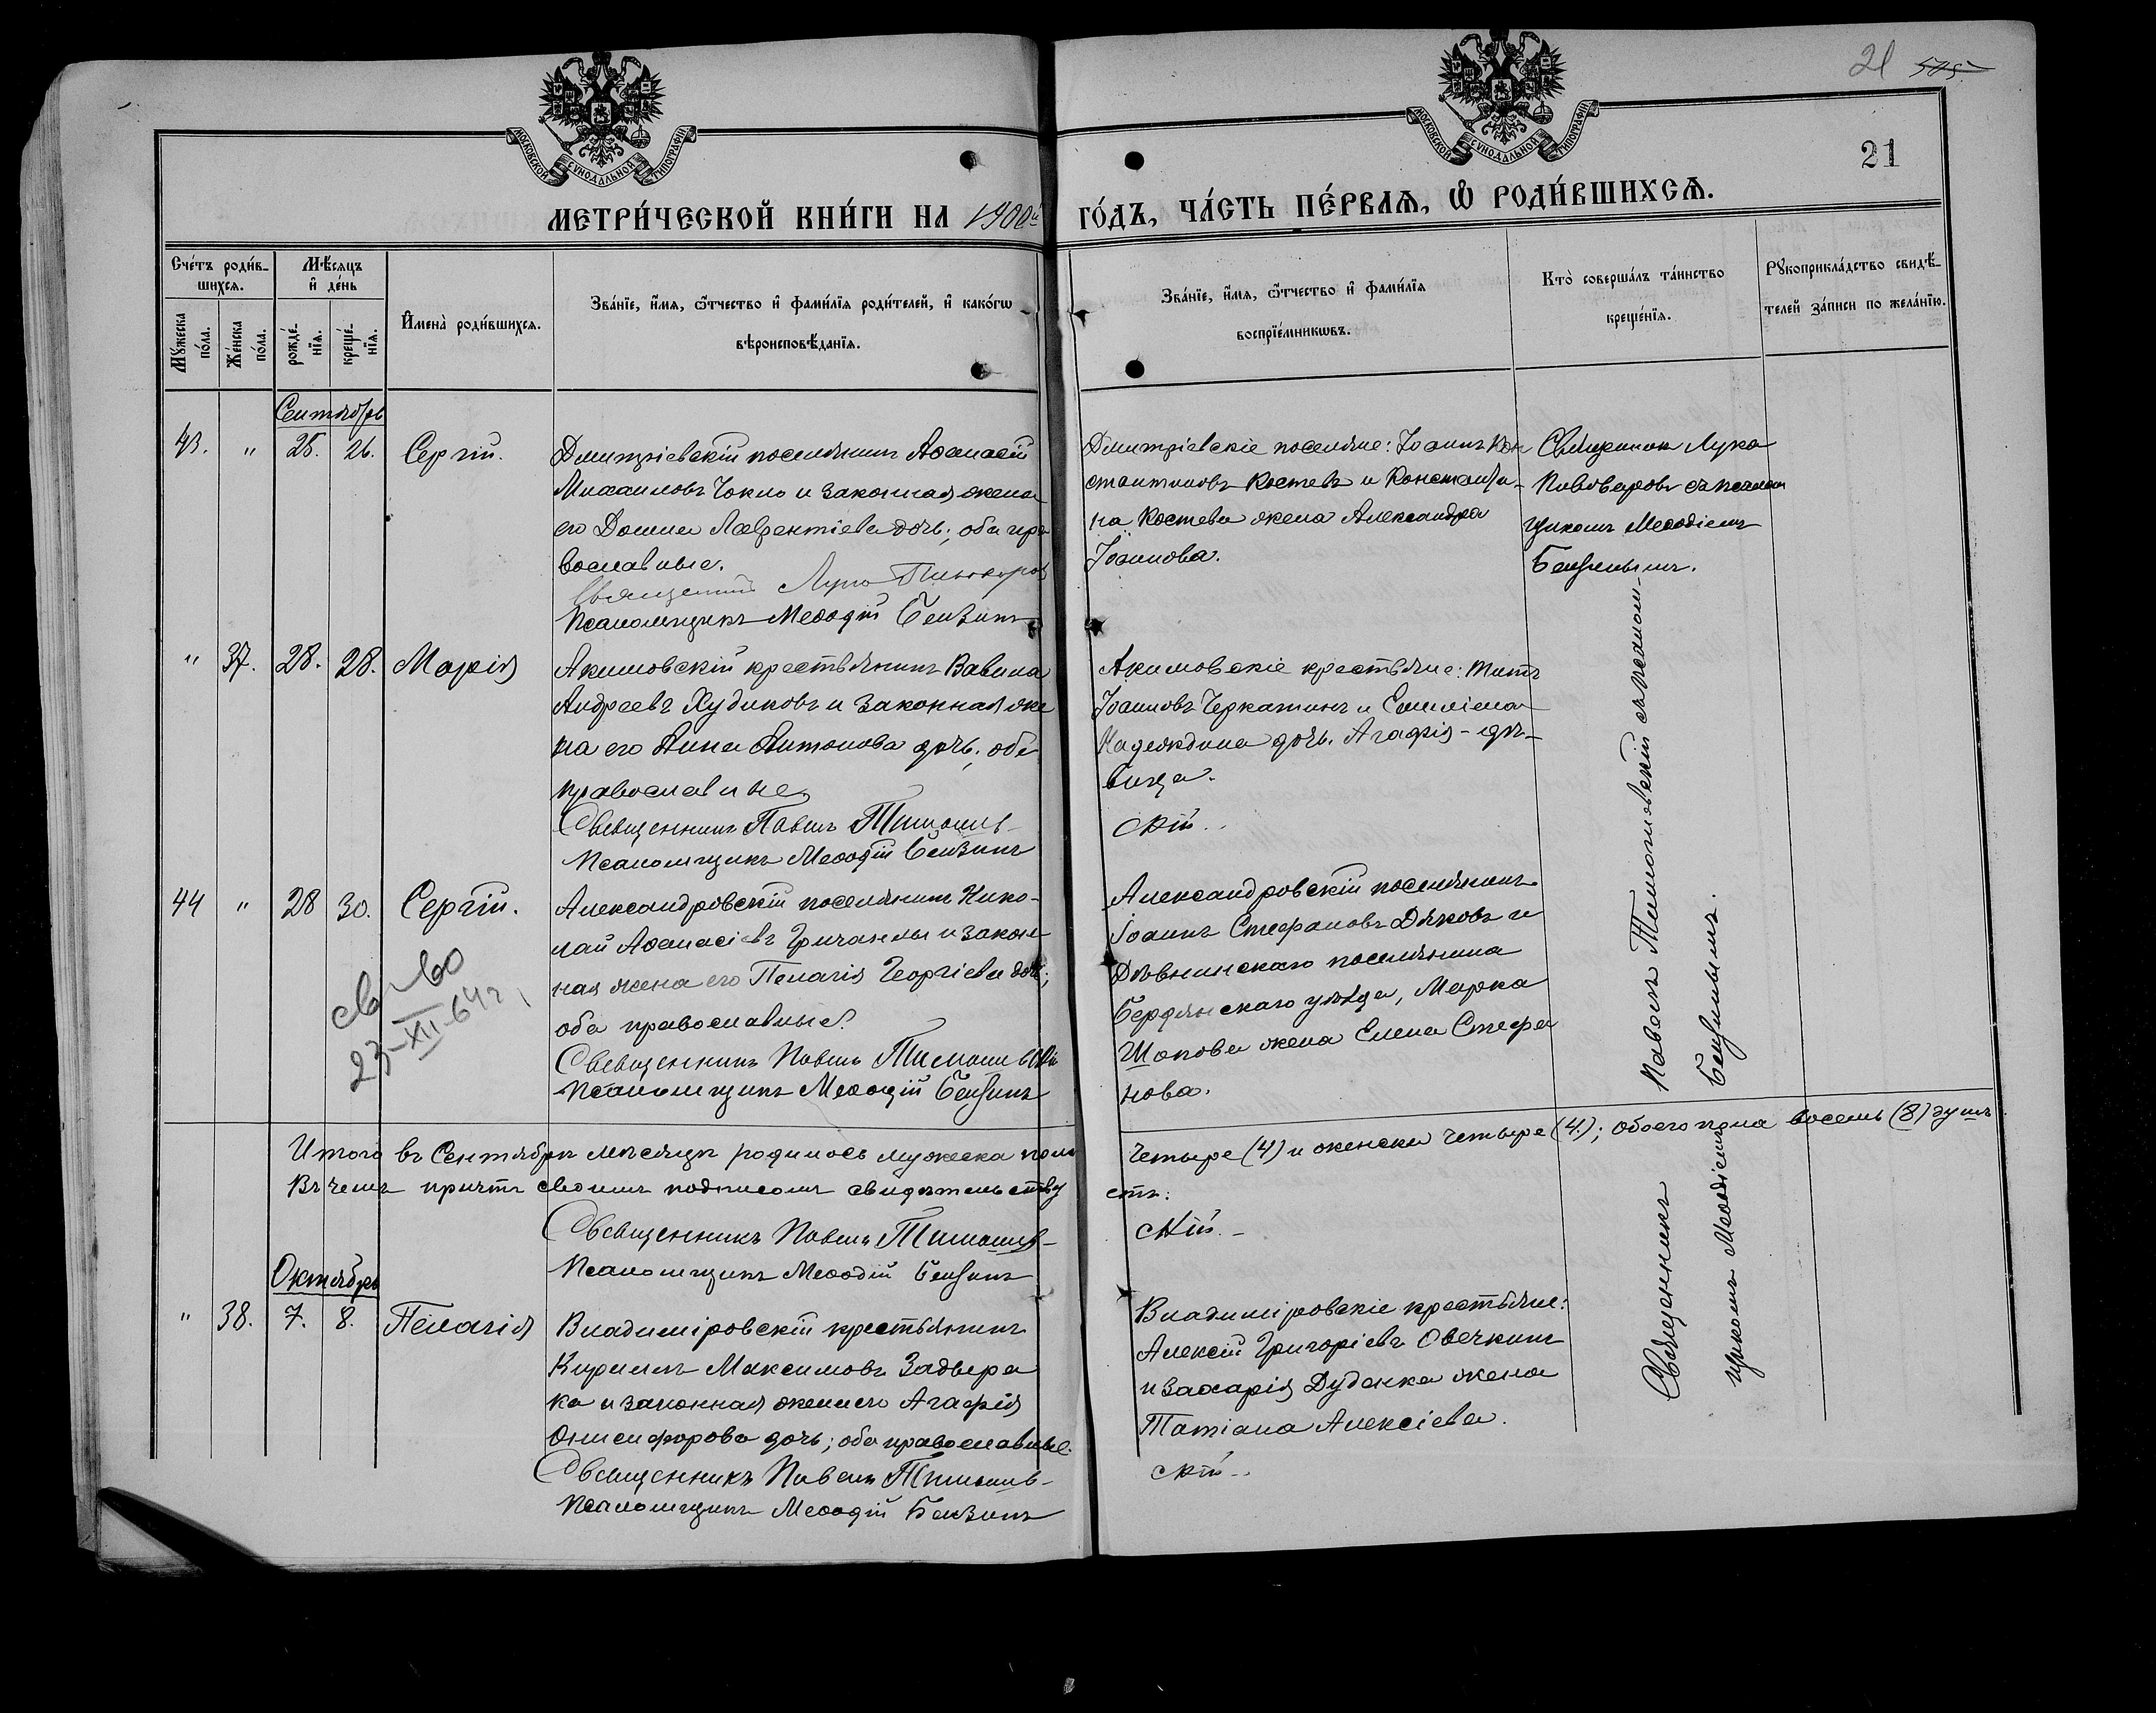 21 505
21
МОСКОВСКОЙ СѴНОДАЛЬНОЙ ТИПОГРАФІИ
МОСКОВСКОЙ СѴНОДАЛЬНОЙ ТИПОГРАФІИ
МЕТРИ́ЧЕСКОЙ КНИ́ГИ НА 1900й
ГО́ДЪ, ЧА́СТЬ ПЕ́РВАѦ, Ѽ РОДИ́ВШИХСѦ.
Сче́тъ роди́в-
шихсѧ.
Мꙋжеска по́ла.
Же́нска по́ла.
Мѣ́сѧцъ
и҆ де́нь
рожде́-
нїѧ.
креще́-
нїѧ.
И҆мена̀ роди́вшихсѧ.
Зва́нїе, и҆́мѧ, ѻ҆́тчество и҆ фами́лїѧ роди́телей, и҆ како́гѡ
вѣроисповѣ́данїѧ.
Зва́нїе, и҆́мѧ, ѻ҆́тчество и҆ фами́лїѧ
воспрїе́мникѡвъ.
Кто̀ соверша́лъ та́инство
креще́нїѧ.
Рꙋкоприкла́дство свидѣ́-
телей за́писи по жела́нїю.
Сентябрь
43. " 25. 26. Сергій.
Дмитріевскій поселянинъ Аѳанасій
Михаиловъ Чокло и законная жена
его Домна Лаврентіева дочь; оба пра
вославные.
Священникъ Лука Пивоваров
Псаломщикъ Меѳодій Бензинъ
Дмитріевскіе поселяне: Іоаннъ Кон
стантиновъ Костевъ и Константи-
на Костева жена Александра
Іоаннова.
Священник Лука
Пивоваровъ съ псалом
щикомъ Меѳодіемъ
Бензинымъ.
" 37. 28. 28. Марія
Акимовскій крестьянинъ Вавила
Андреевъ Худиковъ и законная же
на его Анна Антонова дочь; оба
православные
Священникъ Павелъ Тимошев-
Псаломщикъ Меѳодій Бензинъ
Акимовскіе крестьяне: Титъ
Іоанновъ Черкашинъ и Емиліана
Надеждина дочь Агафія - дѣ-
вица.
скій.
44 " 28 30. Сергій.
св-во
23-XII-64 г.
Александровскій поселянинъ Нико-
лай Аѳанасіевъ Гричаный и закон
ная жена его Пелагія Георгіева дочь;
оба православные.
Священникъ Павелъ Тимошевскій
Псаломщикъ Меѳодій Бензинъ
Александровскій поселянинъ
Іоаннъ Стефановъ Дяковъ и
поселянина
Бердянскаго уѣзда, Марка
Шопова жена Елена Стефа
нова.
Священникъ Павелъ Тимошевскій съ псалом-
щикомъ Меѳодіемъ Бензинымъ.
Итого въ Сентябрѣ мѣсяцѣ родилось мужеска пола
Четыре (4) и женска четыре (4); обоего пола восемь (8) душъ
Въ чемъ причтъ своимъ подписомъ свидѣтельству
етъ:
Священникъ Павелъ Тимошев-
скій.-
Псаломщикъ Меѳодій Бензинъ
Октябрь
" 38. 7. 8. Пелагія
Владиміровскій крестьянинъ
Кириллъ Максимовъ Задвира
ка и законная жена его Агафія
Онисифорова дочь; оба православные.
Священникъ Павелъ Тимошев-
Псаломщикъ Меѳодій Бензинъ
Владиміровскіе крестьяне:
Алексій Григоріевъ Овечкинъ
и Захарія Дуденка жена
Татіана Алексіева.
скій.